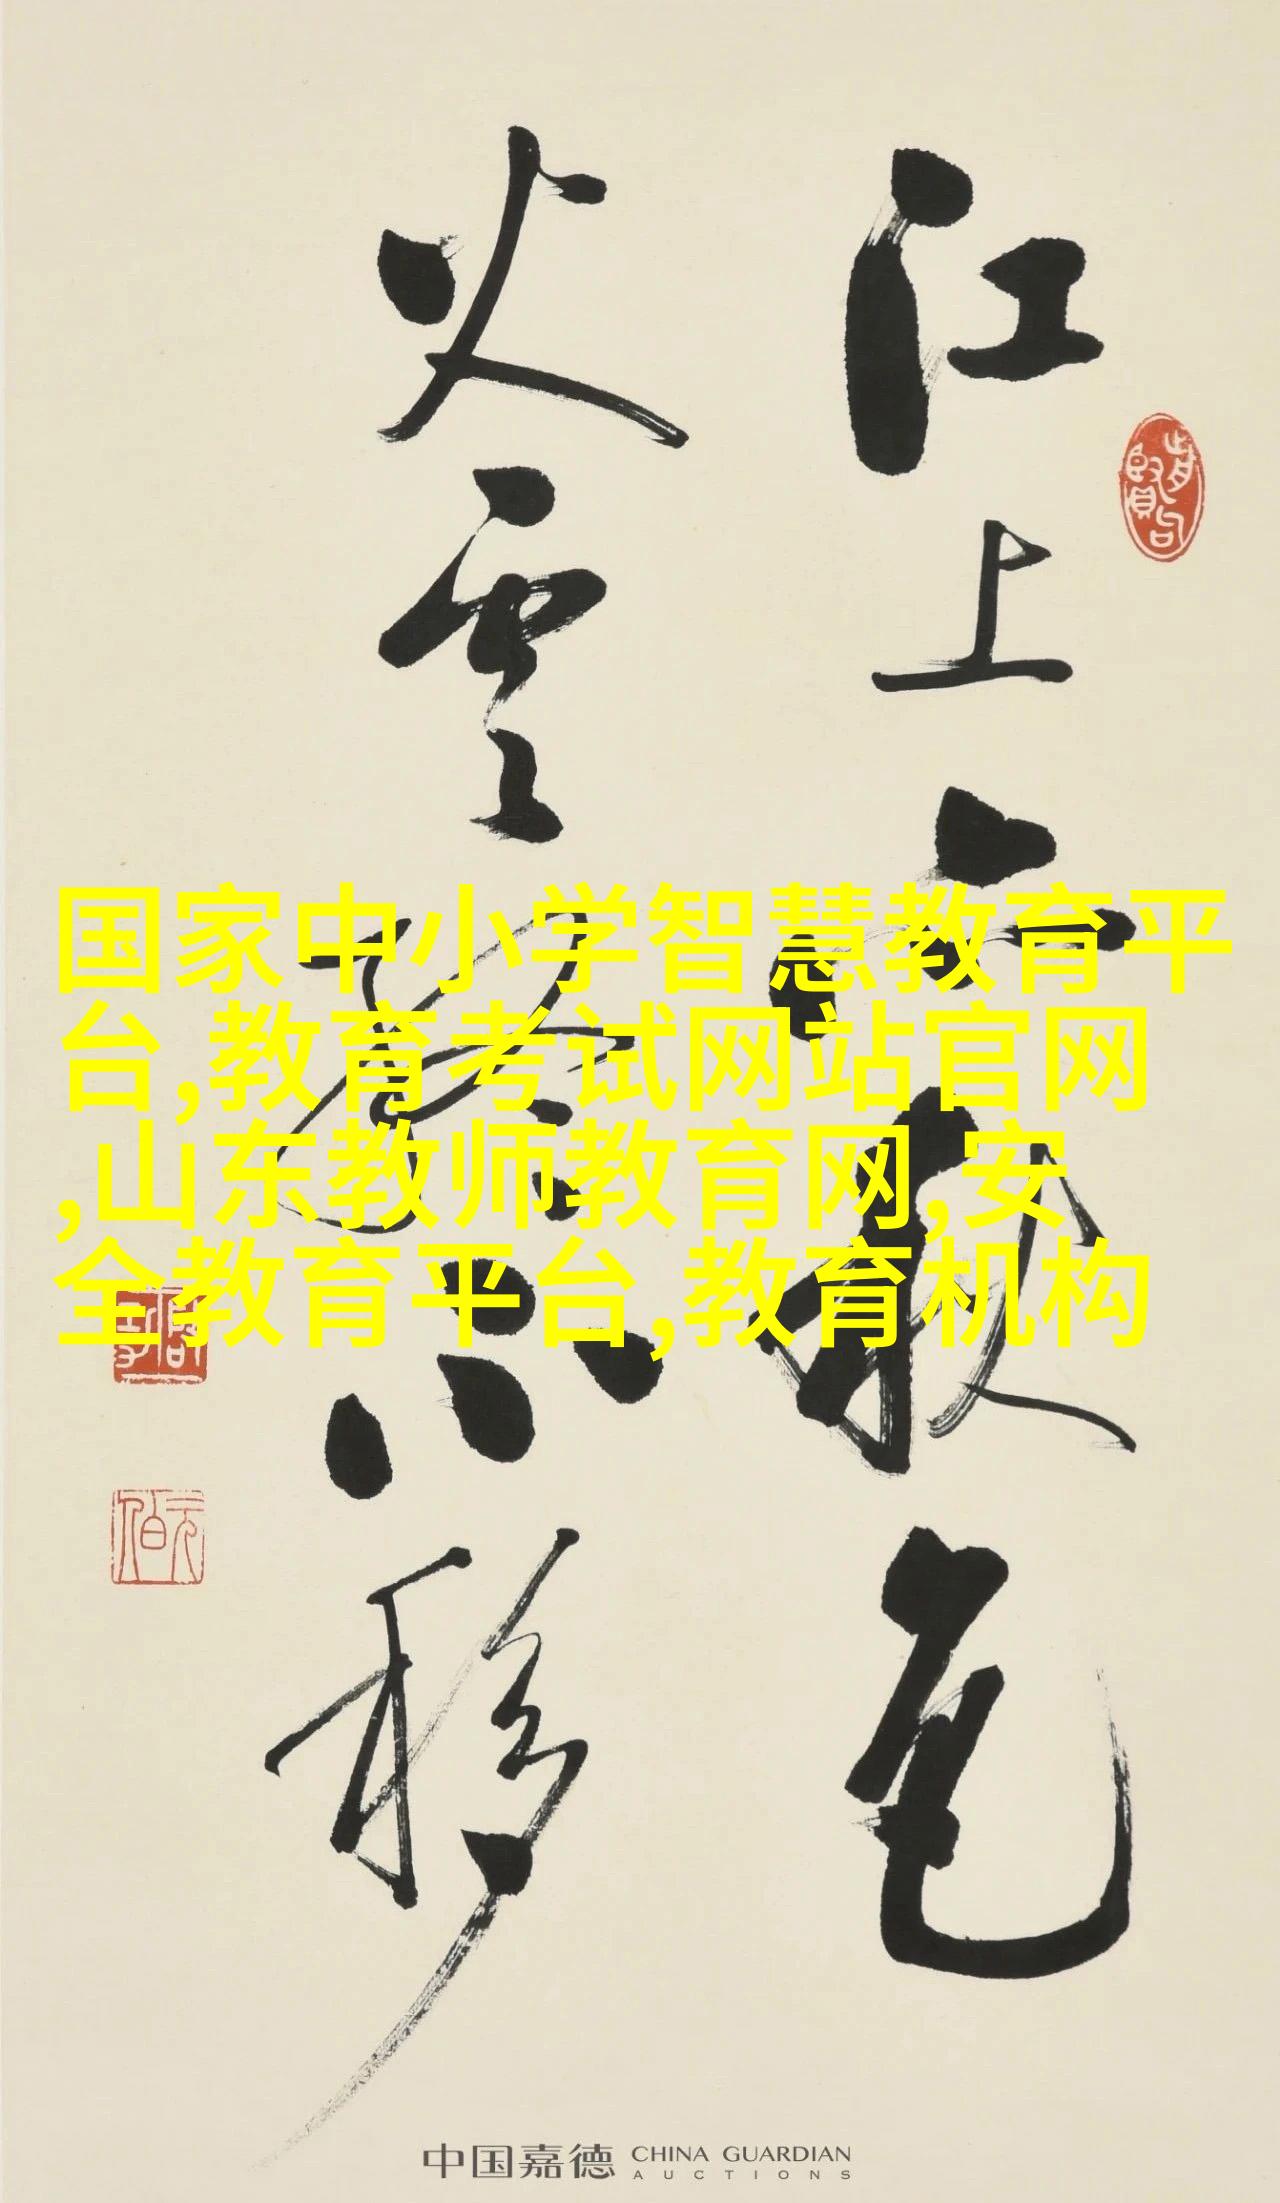 江上亦秋色
火雲終不移
国家中小学智慧教育平
台,教育考试网站官网
,山东教师教育网,安
全教育平台,教育机构
中国嘉德 CHINA GUARDIAN
AUCTIONS